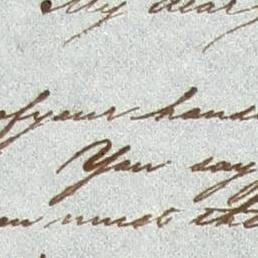 My dear
of your hand
You say
must the